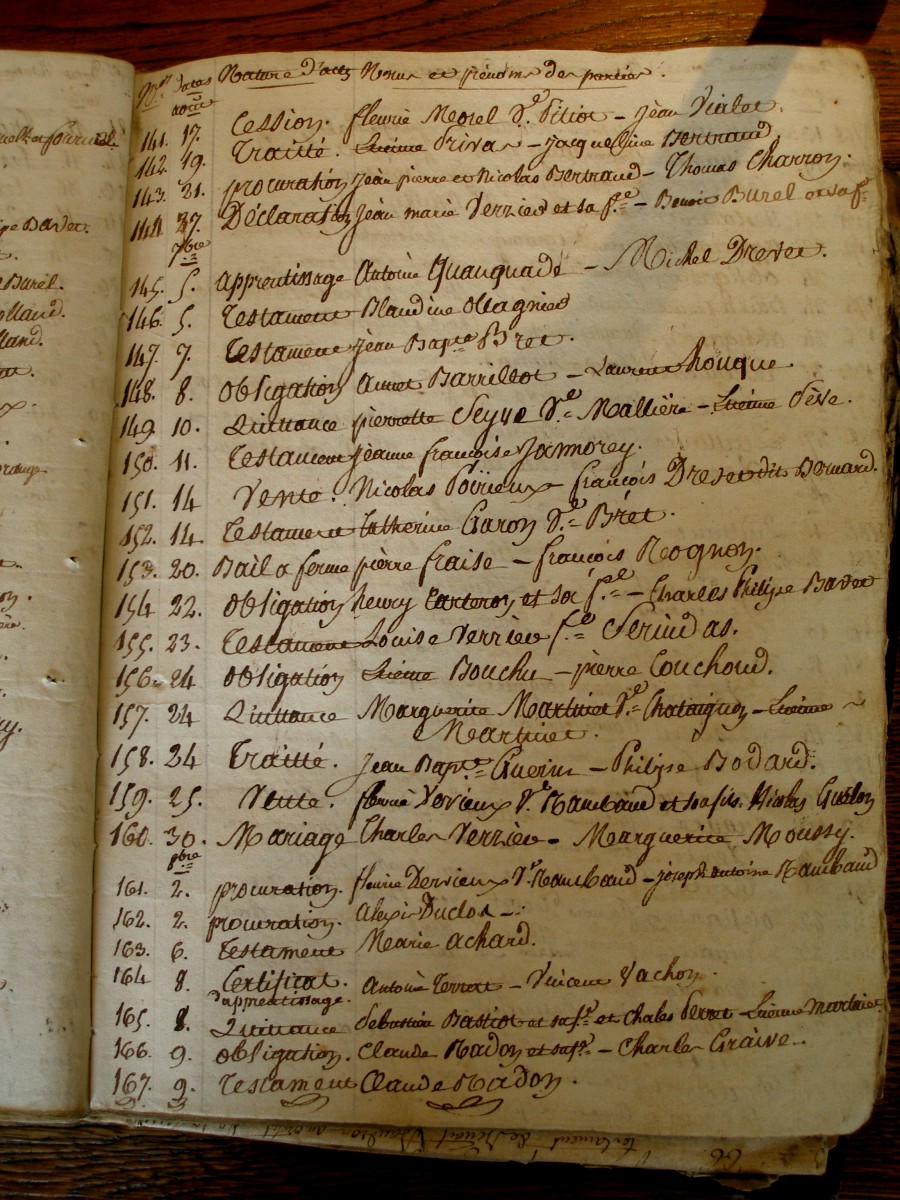 Nos dates Nature d'acte Noms et prénoms des parties.
aoüt
141. 17. Cession. fleurie Morel Ve. Pitiot - Jean Vialet.
142. 19. Traitté. Etienne Privas - Jacqueline Bertrand
143. 21. procuration Jean pierre et Nicolas Bertrand - Thomas Charron.
144 27. Déclaration Jean marie Verrier et sa fe. - Benoit Burel et sa fe
7bre
145. 5. apprentissage Antoine Quanquadé - Michel Drevet.
146. 5. Testament Blandine Ollagnier
147. 7. Testament Jean Bapte. Bret.
148. 8. obligation annet Barrillot - Laurent chouque
149 10. Quittance pierrette Seyve Ve. Mallière - Etienne Sève.
150. 11. Testament Jeanne françoise Jamorey.
151. 14 Vente. Nicolas Poirieux - françois Drevet dit Bernard.
152. 14. Testament Catherine Caron Ve. Brét.
153. 20. Bail a ferme pierre fraise - françois Rognon.
154 22. obligation henry Carteron et sa fe. - Charles Philipe Bavet
155. 23. Testament Louise Verrier fe. Serindas.
156. 24 obligation Etienne Bouchu - pierre Couchoud.
157. 24 Quittance Marguerite Martinet Ve. Chataignon - Etienne ~
Martinet.
158. 24 Traitté. Jean Bapte. Guerin - Philipe Bodard.
159. 25. Vente. fleurie Dervieux Ve. Rambaud et son fils. Nicolas
160. 30. Mariage Charles Verrier - Marguerite Moussy.
8bre
161. 2. procuration. fleurie Dervieux Ve. Rambaud - joseph antoine Rambaud
162. 2. procuration. alexis Duclos -.
163. 6. Testament Marie achard.
164 8. Certificat. Antoine Terrot - Vincent Vachon.
d'apprentissage.
165. 8. Quittance Sebastien Bastiot et sa fe. et Charles Perret - Etienne Martinet
166. 9. obligation. Claude Radon et sa fe. - Charles Graive.
167. 9. Testament Claude Radon.